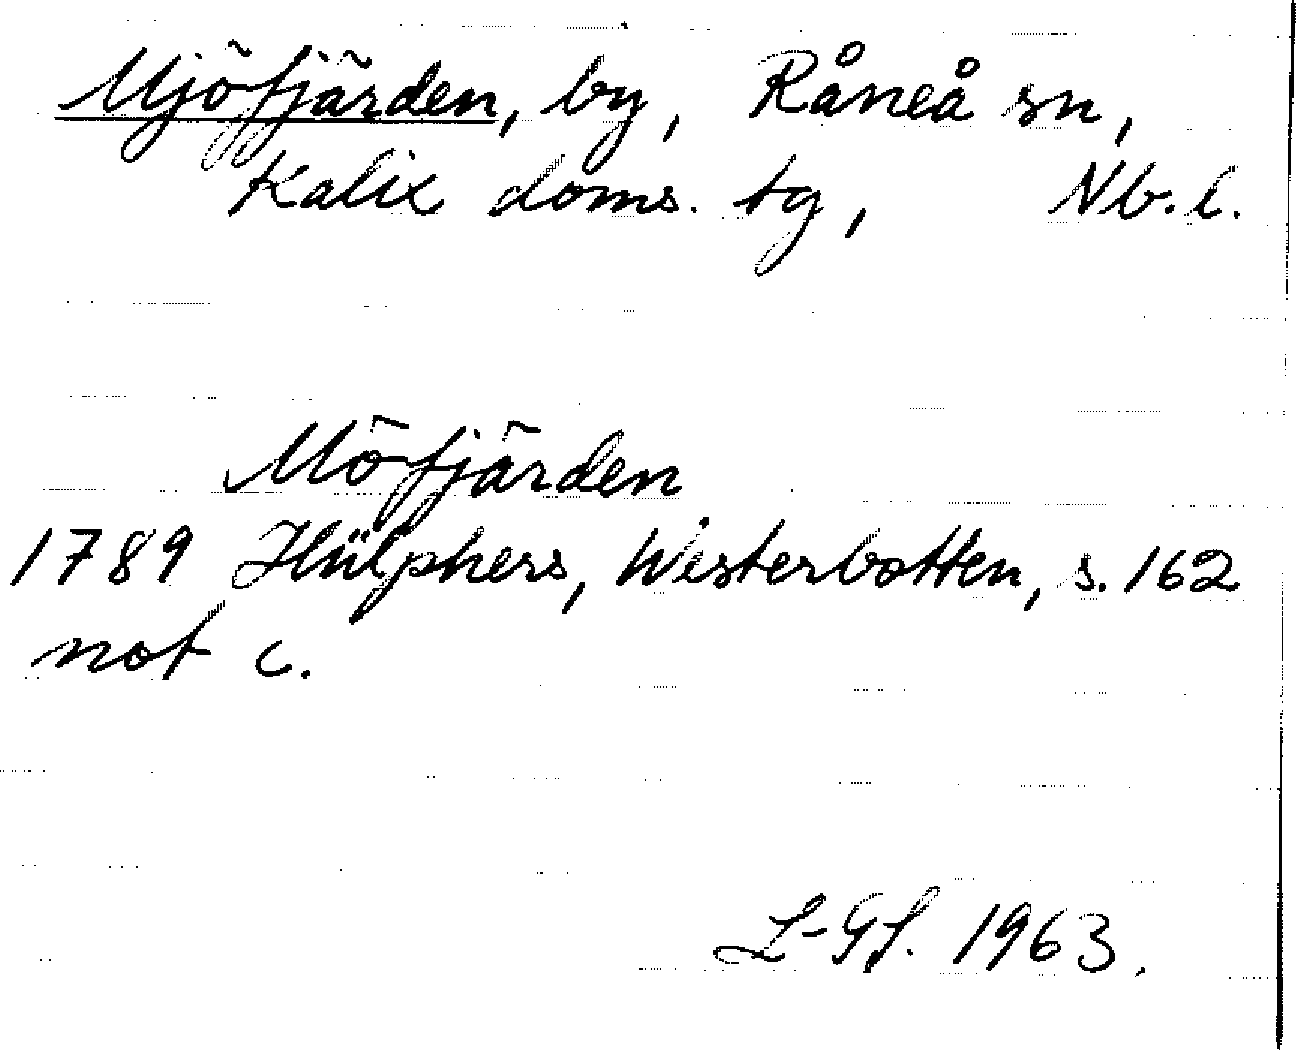 Mjöfjärden, by, Råneå sn,
Kalix doms. tg, Nb. l.
Möfjärden
1789 Hülphers, Westerbotten, s. 162
not c.
L-GS. 1963.